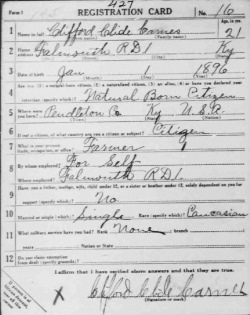 427
Form 1 REGISTRATION CARD No. 16
1 Name in full Clifford Clide Carnes Age, in yrs. 21
(Family name)
2 Home address Falmouth RD1 Ky
3 Date of birth Jan 1896
(Month) (Day) (Year)
4 Natural Born Citizen
5 Where were you born? Pendleton Co Ky U.S.A.
6 If not a citizen, of what country are you a citizen or subject? Citizen
7 What is your present trade, occupation, or office? Farmer
8 By whom employed? For Self
Where employed? Falmouth RD1.
9 Have you a father, mother, wife, child under 12, or a sister or brother under 12, solely dependent on you for support (specify which)? No
10 Married or single (which)? Single Race (specify which)? Caucasian
11 What military service have you had? Rank None branch
years Nation or State
12 Do you claim exemption from draft (specify grounds)?
I affirm that I have verified above answers and that they are true.
X Clifford Clide Carnes
(Signature or mark)